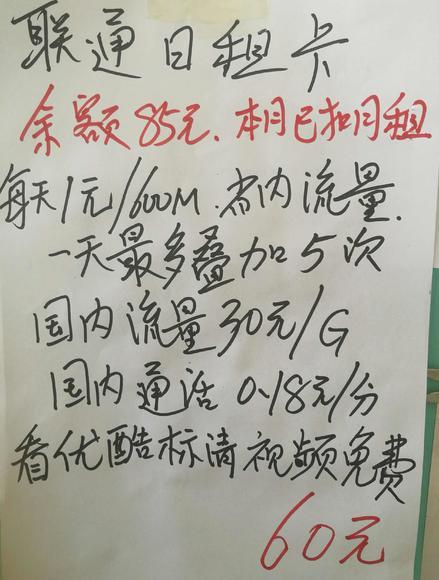 联通日租卡
余额85元.本月已扣月租
每天1元/600M.省内流量.
一天最多叠加5次
国内流量30元/G
国内通话0.18元/分
看优酷标清视频免费
60元